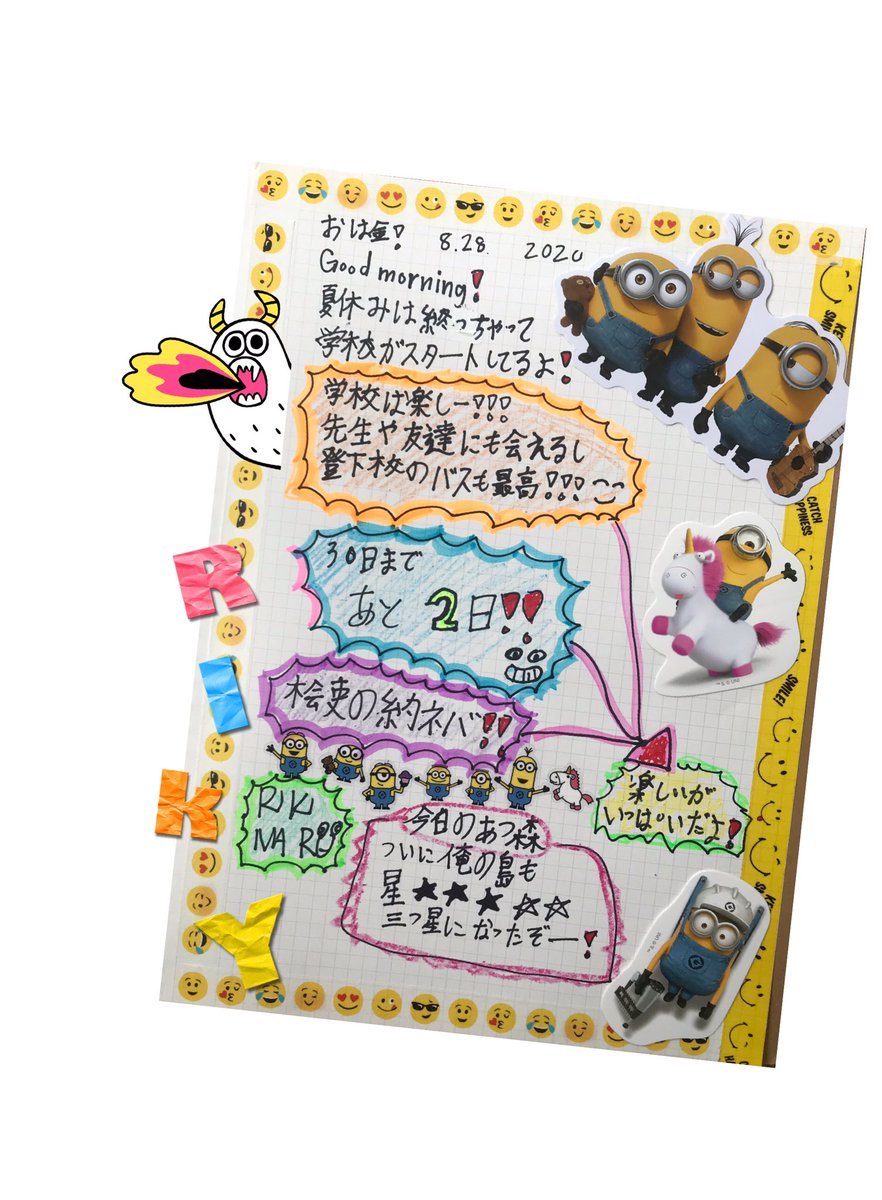 おは金! 8.28. 2020
Good morning!
夏休みは終っちゃって
学校がスタートしてるよ!
学校は楽しー!!!
先生や友達にも会えるし
登下校のバスも最高!!!
30日まで
あと 2日!!
桧吏の約ネバ!!
楽しいが
いっぱいだよ!
RIKI
MARU
今日のあつ森
ついに俺の島も
星★★★☆☆
三つ星になったぞー!
R
I
K
Y
CATCH
SMILE!